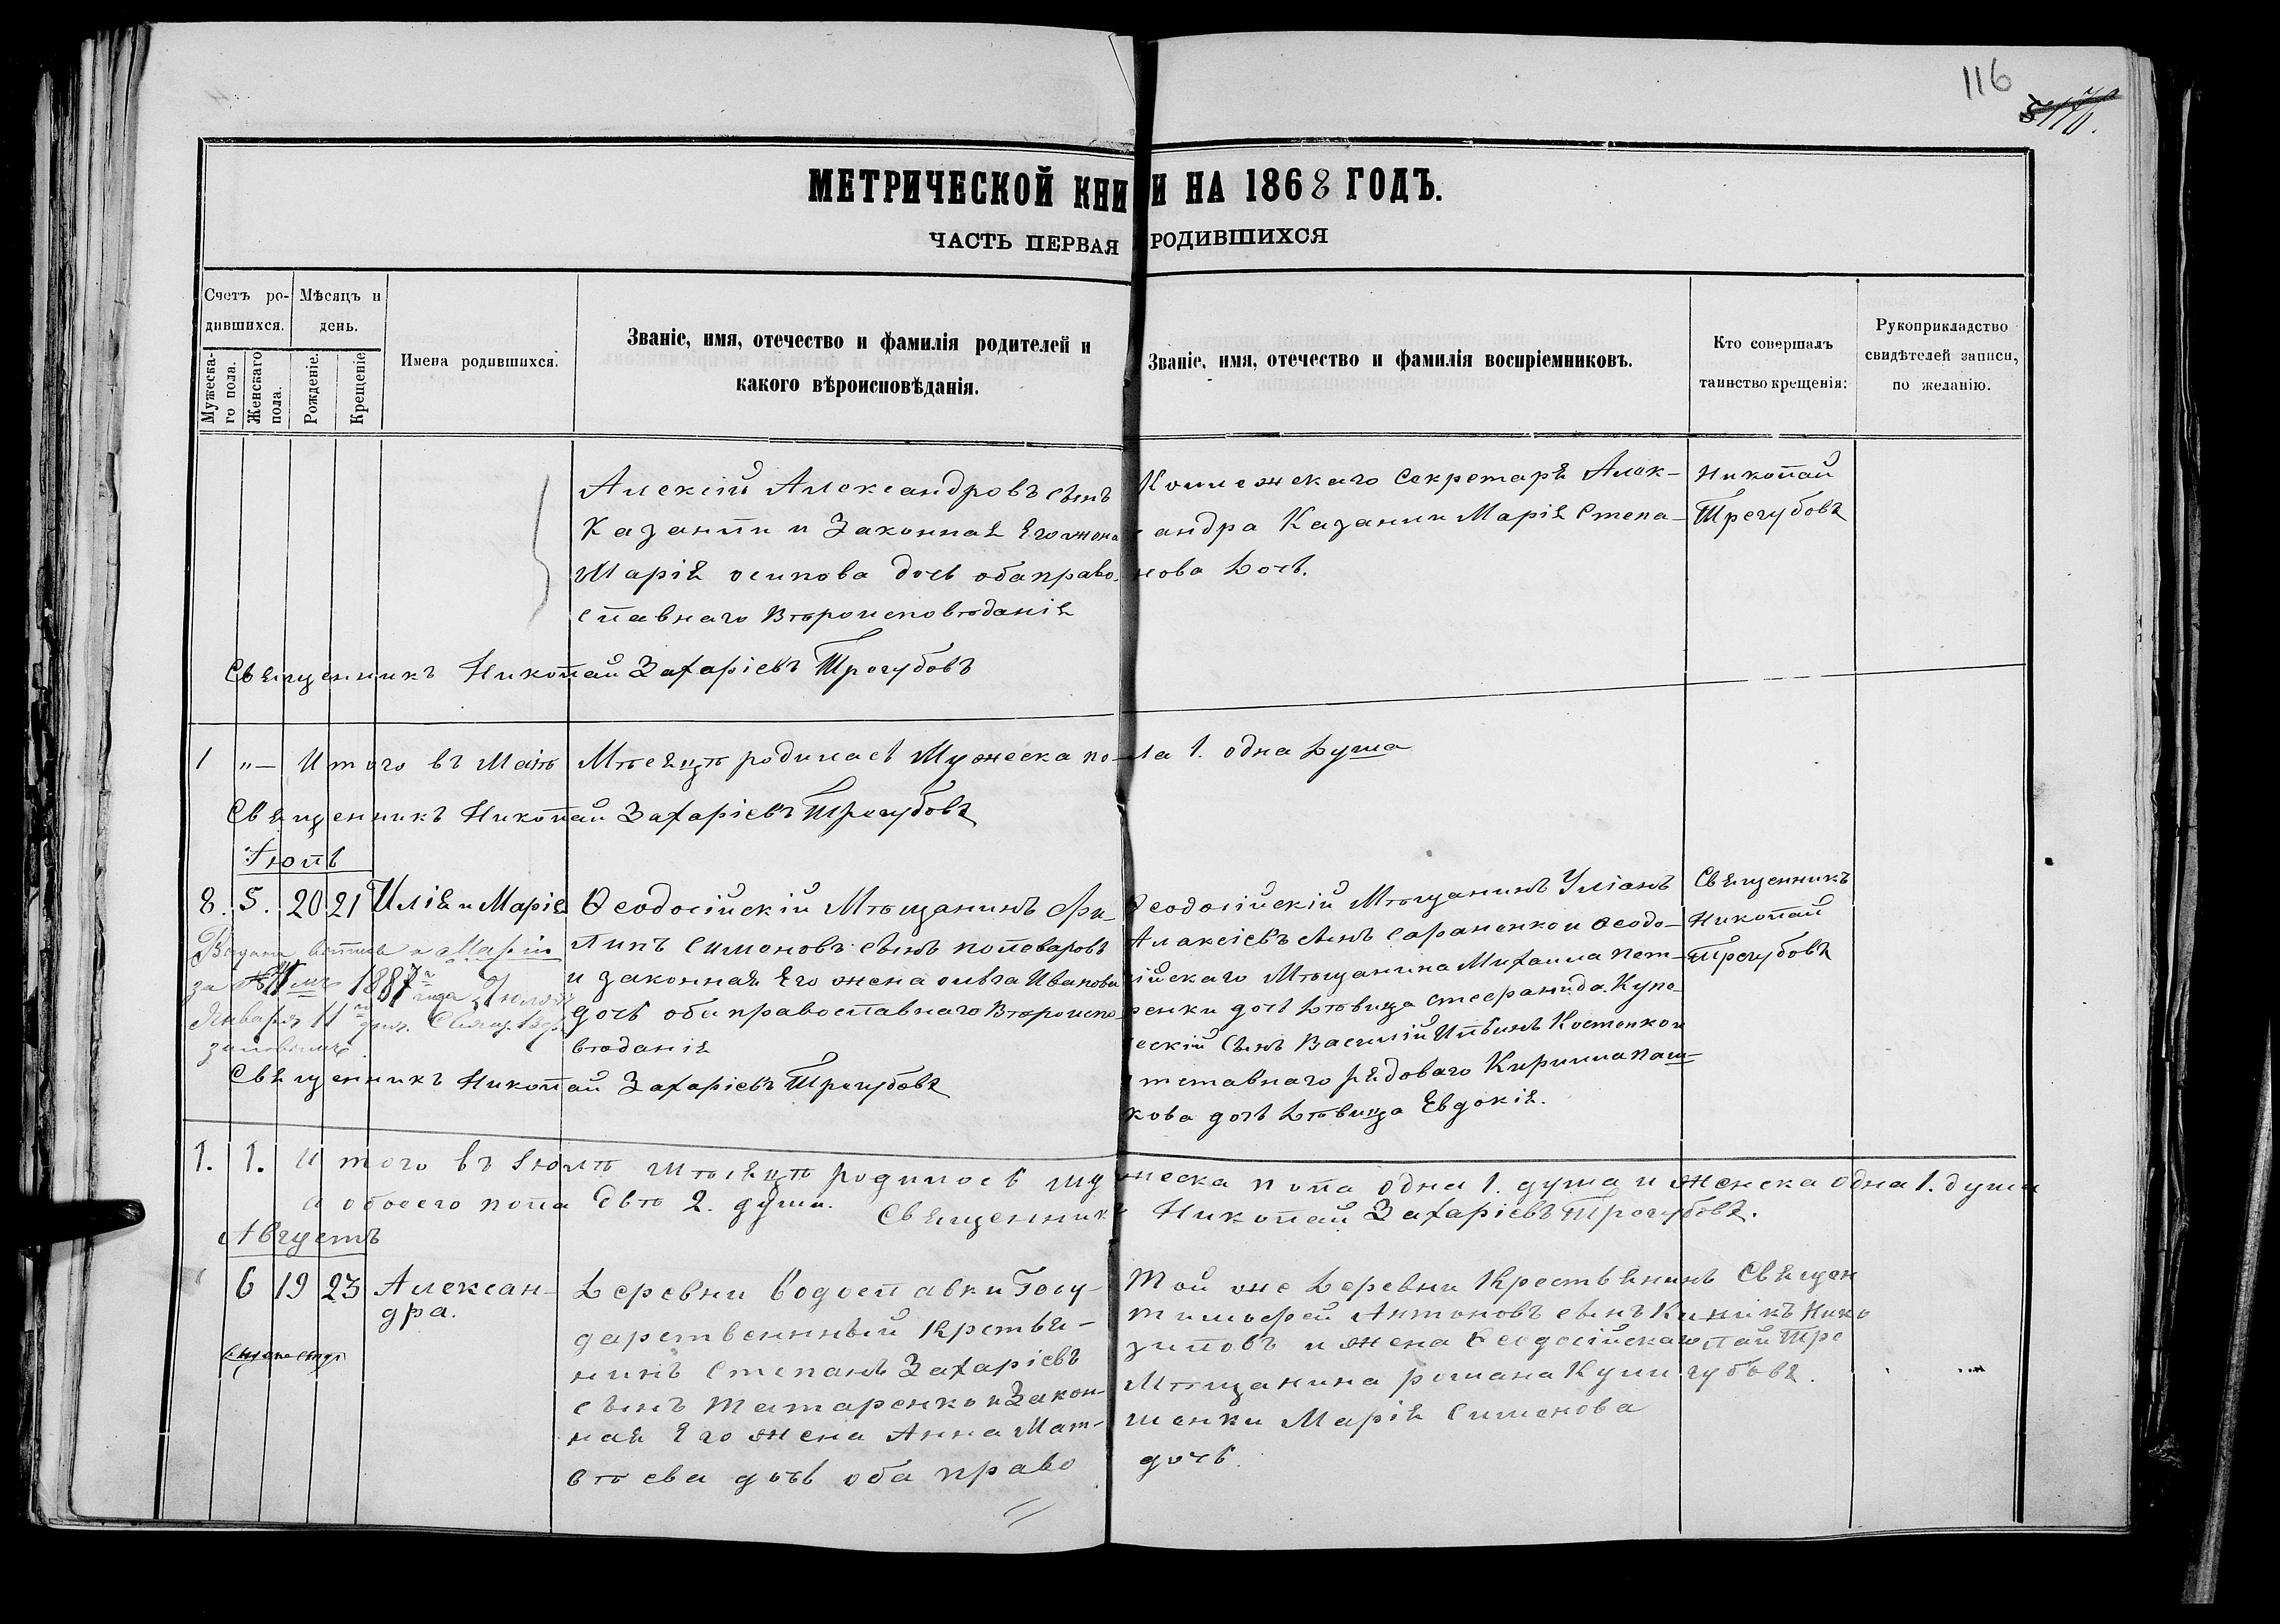 116
МЕТРИЧЕСКОЙ КНИ И НА 1868 ГОДЪ.
ЧАСТЬ ПЕРВАЯ РОДИВШИХСЯ
Счетъ ро-
дившихся.
Мужеска-
го пола.
Женскаго
пола.
Мѣсяцъ и
день.
Рожденіе.
Крещеніе
Имена родившихся.
Званіе, имя, отечество и фамилія родителей и
какого вѣроисповѣданія.
Званіе, имя, отечество и фамилія воспріемниковъ.
Кто совершалъ
таинство крещенія:
Рукоприкладство
свидѣтелей записи,
по желанію.
Алексій Александровъ сынъ
Казанли и Законная Его жена
Марія осипова дочь оба право-
славнаго Вѣроисповѣданія
Коллежскаго Секретаря Алек-
андра Казанли Марія Степа-
нова Дочь.
Николай
Трегубовъ
Священникъ Николай Захаріевъ Трегубовъ
1 „— Итого въ Маіѣ Мѣсяцѣ родилась Мужеска по-ла 1. одна Душа
Священникъ Николай Захаріевъ Трегубовъ
Іюль
8. 5. 20 21 Илія и Марія
Ѳеодосійскій Мѣщанинъ Фи-
липъ Симоновъ сынъ Половаровъ
и законная Его жена Ольга Иванова
дочь оби православнаго Вѣроиспо-
вѣданія
Ѳеодосійскій Мѣщанинъ Уліанъ
Алаксіевъ сынъ Сараненко и Ѳеодо-
ійскаго Мѣщанина Михаила Пет-
ренки дочь Дѣвица Стефанида. Купе-
ескій Сынъ Василій Ильинъ Костенко и
тставнаго рядоваго Кирилла Паш-
кова дочь Дѣвица Евдокія.
Священникъ
Николай
Трегубовъ
Маріи
за № 1887 года
Января 11 дня.
Священникъ Николай Захаріевъ Трегубовъ
1. 1. Итого въ Іюлѣ Мѣсяцѣ родилось мужеска пола одна 1. душа и Женска одна 1. душа
а обоего пола двѣ 2. души. Священникъ Николай Захаріевъ Трегубовъ.
Августъ
6 19 23 Алексан-
дра.
Деревни Водославки Госу-
дарственнный Крстья-
нинъ Степанъ Захаріевъ
сынъ Татаренко и Закон-
ная Его жена Анна Мат-
вѣева дочь оба право
Той же Деревни Крестьянинъ
Тимофей Антоновъ сынъ Ки
зиловъ и Жена Ѳеодосійскаго
Мѣщанина романа Кули
шенки Марія Симонова
дочь.
Священ
никъ Нико
лай Тре
губовъ.